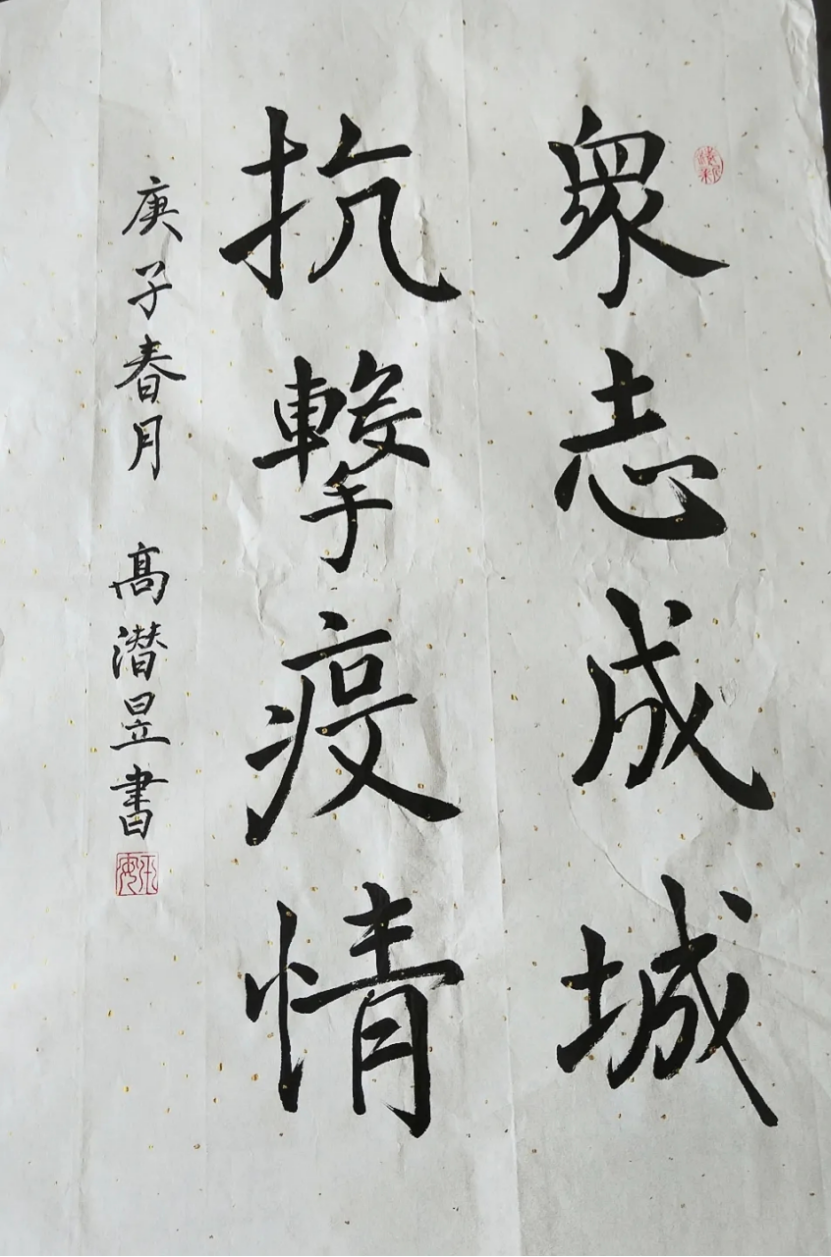 眾志成城
抗擊疫情
庚子春月 高潛昱書